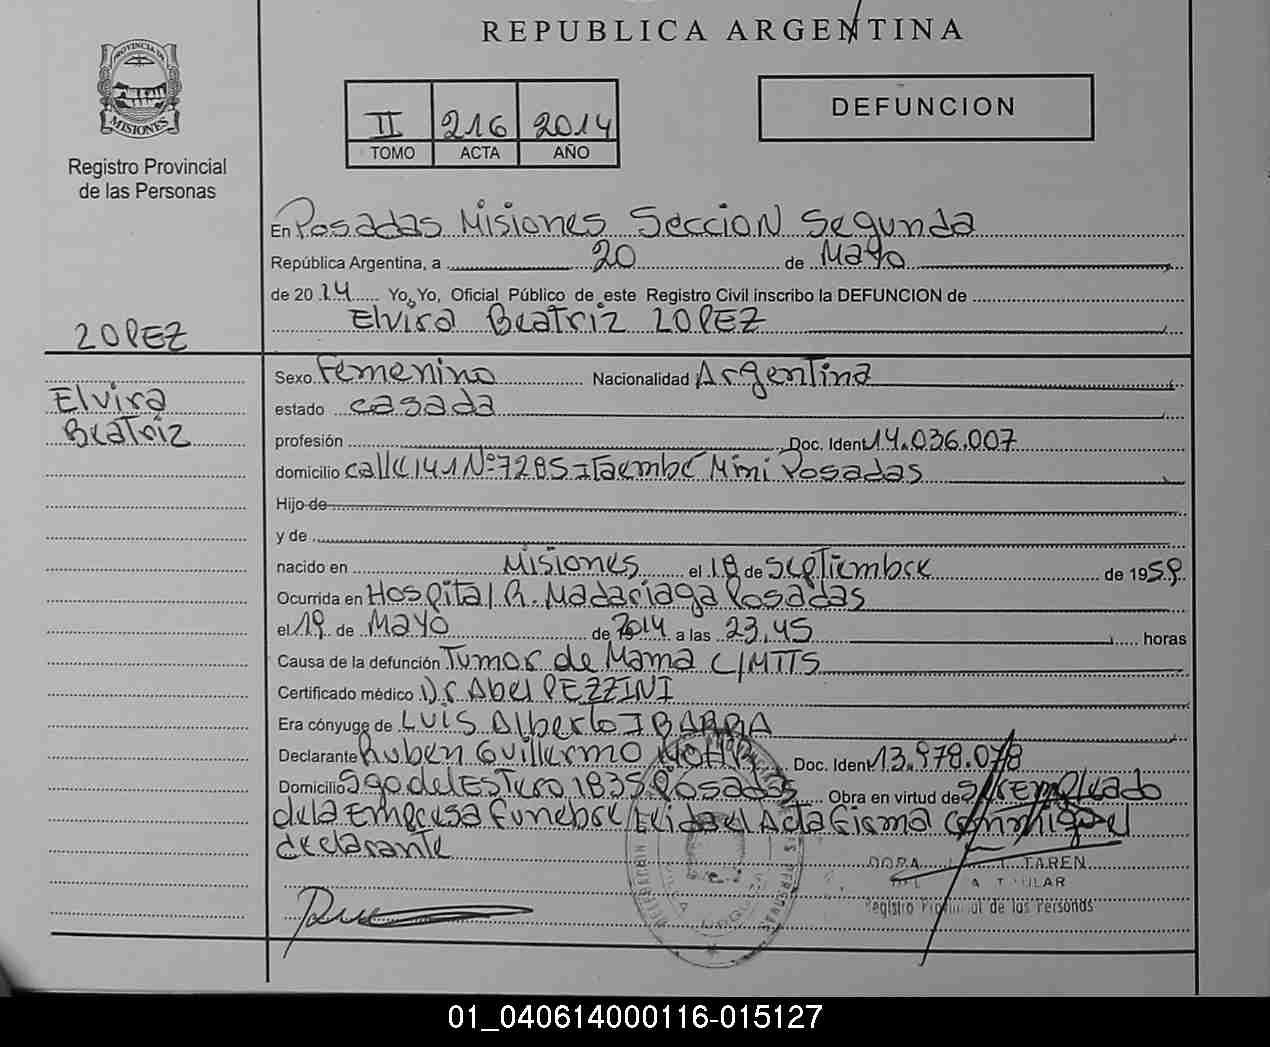 REPUBLICA ARGENTINA
PROVINCIA DE
MISIONES
Registro Provincial
de las Personas
II 216 2014
TOMO ACTA AÑO
DEFUNCION
En Posadas Misiones Seccion Segunda
República Argentina, a 20 de Mayo
de 2014 Yo, Yo, Oficial Público de este Registro Civil inscribo la DEFUNCION de
Elvira Beatriz LOPEZ
LOPEZ
Elvira
Beatriz
Sexo Femenino Nacionalidad Argentina
estado casada
profesión Doc. Ident 14.036.007
domicilio calle 141 Nº 7285 Itaembé Mini Posadas
Hijo de
y de
nacido en Misiones el 18 de Septiembre de 1959
Ocurrida en Hospital R. Madariaga Posadas
el 19 de Mayo de 2014 a las 23,45 horas
Causa de la defunción Tumor de Mama C/MTTS
Certificado médico Dr Abel PEZZINI
Era cónyuge de LUIS Alberto IBARRA
Declarante Ruben Guillermo Doc. Ident 13.978.078
Domicilio Sgo del Estero 1835 Posadas Obra en virtud de ser empleado
de la Empresa Funebre Leida el Acta Firma conmigo el
declarante
DORA TAREN
TITULAR
Registro Provincial de las Personas
01_040614000116-015127